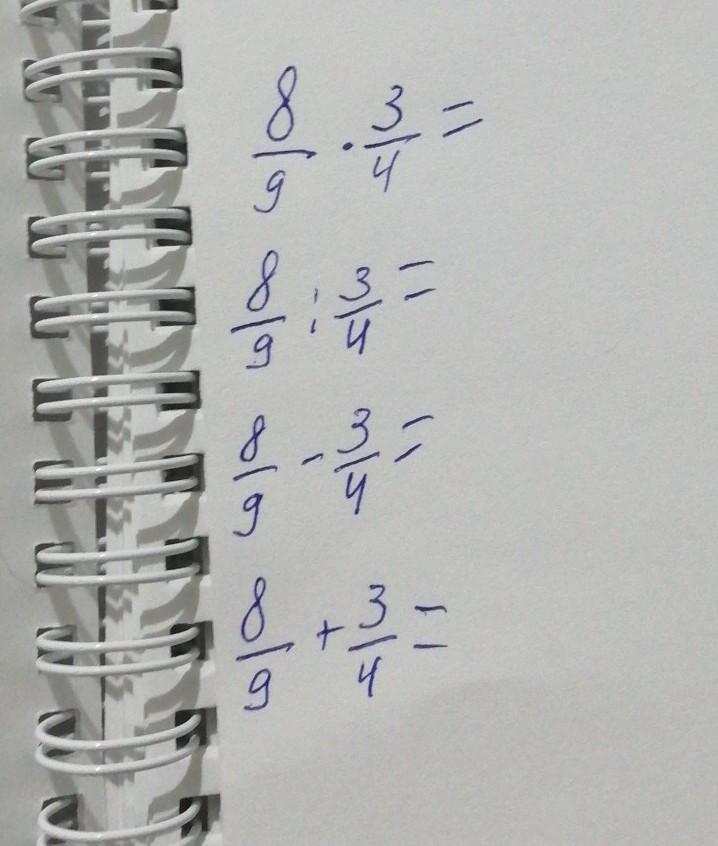 8/9 · 3/4 =
8/9 : 3/4 =
8/9 - 3/4 =
8/9 + 3/4 =